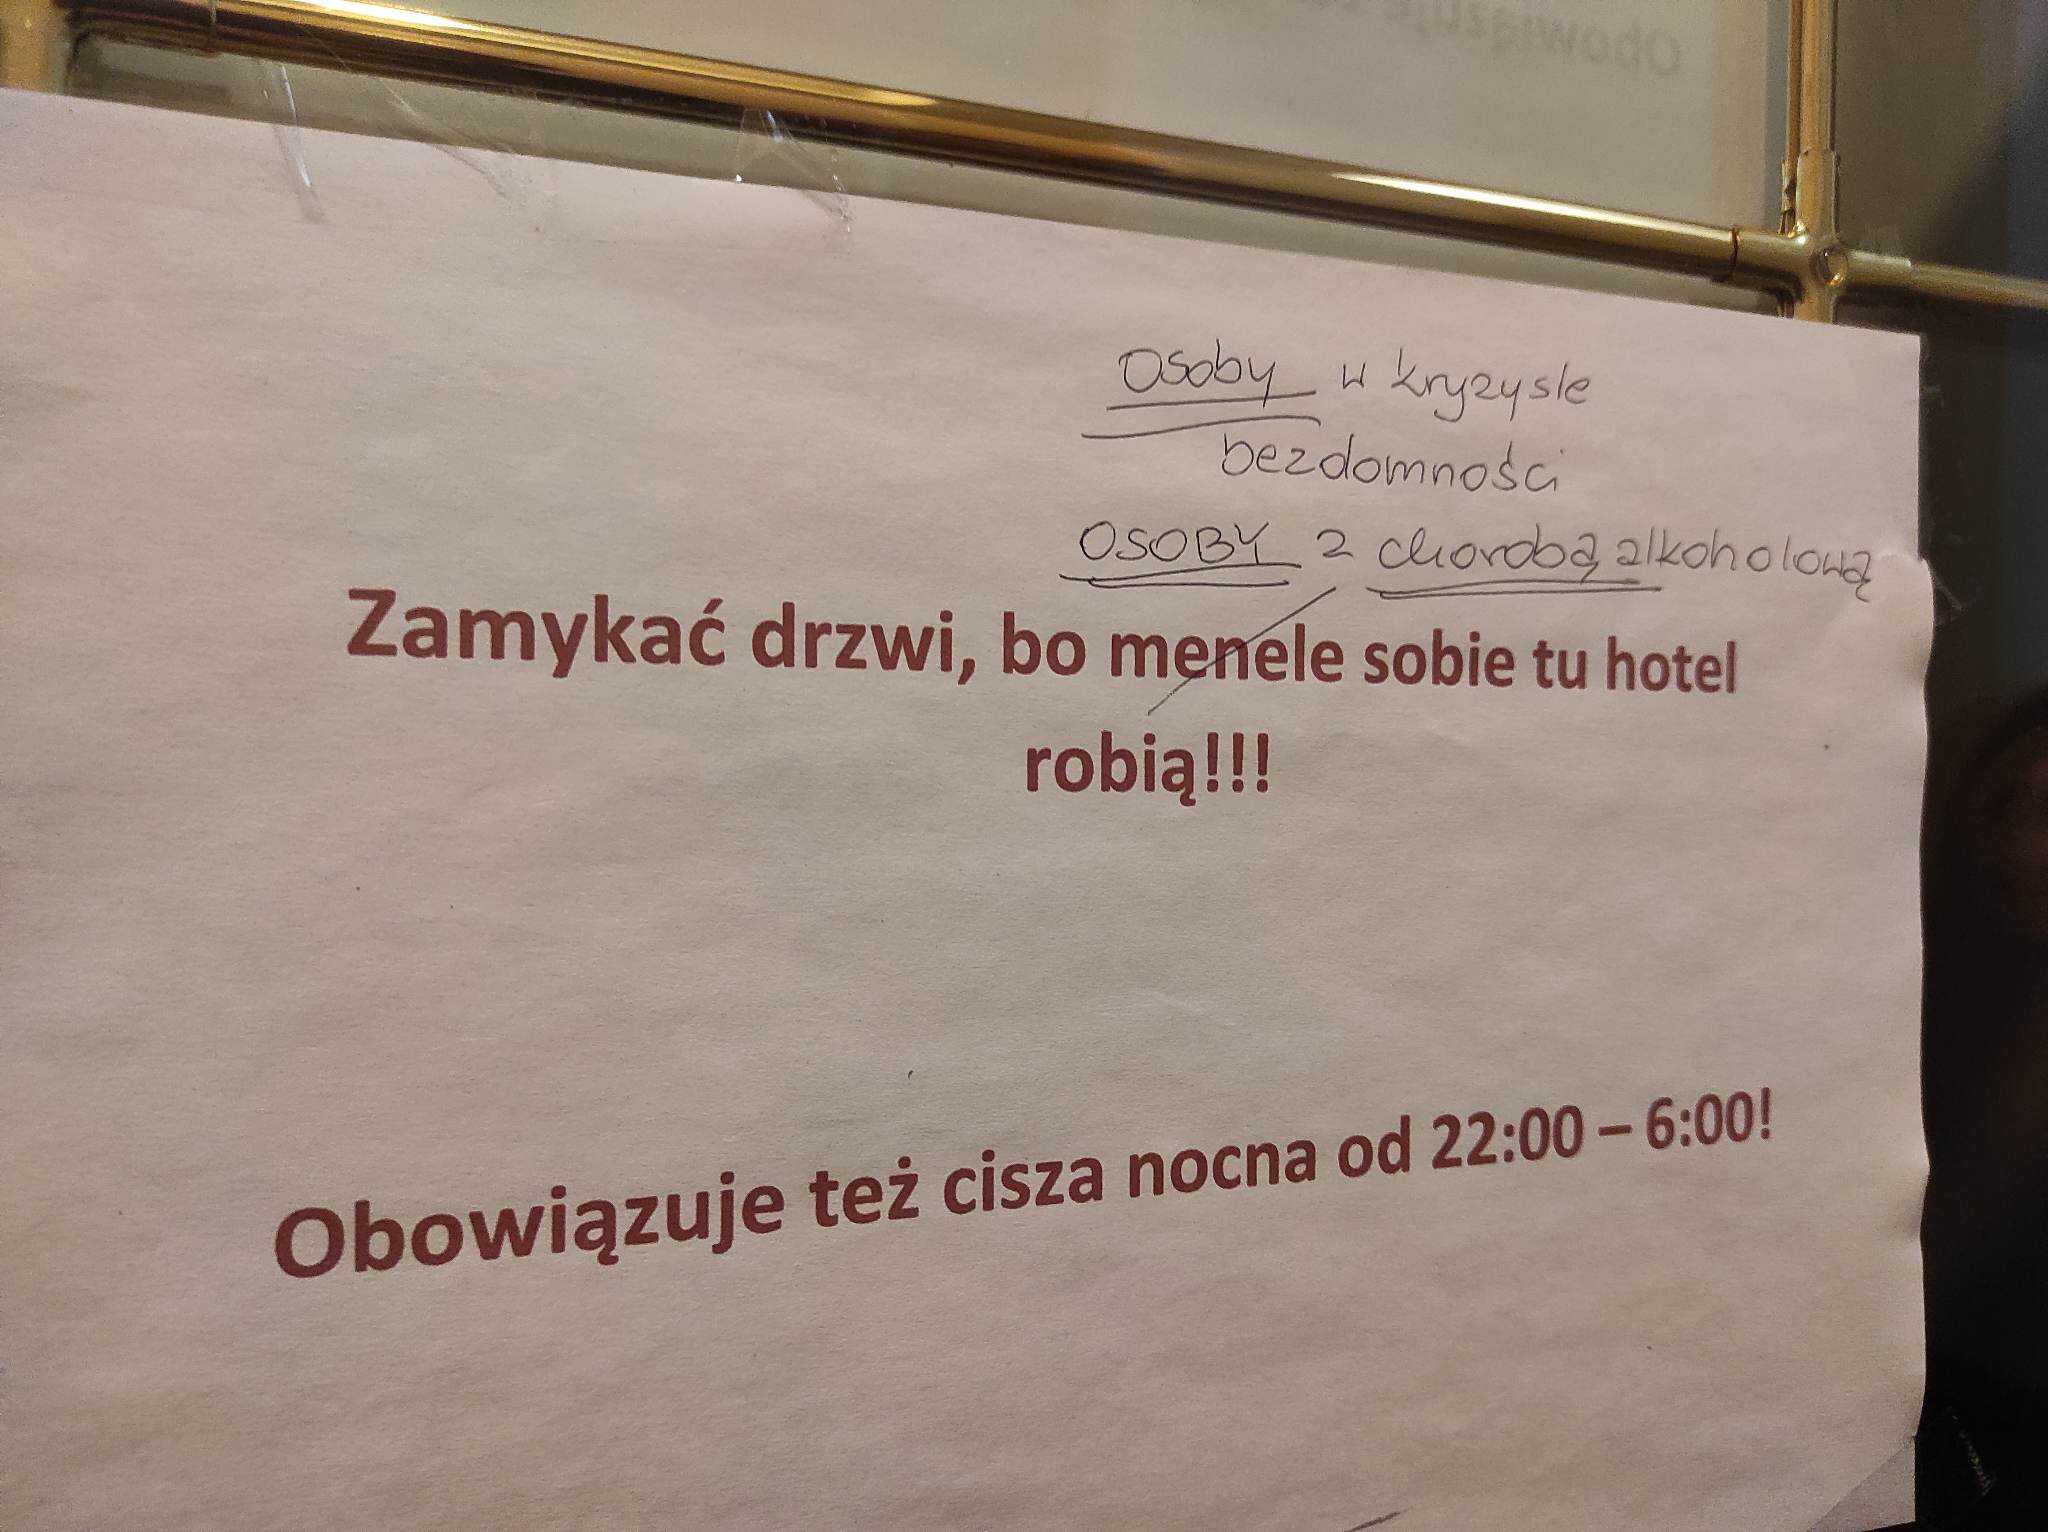 Obowiązuje
Osoby w kryzysie
bezdomności
OSOBY z chorobą alkoholową
Zamykać drzwi, bo menele sobie tu hotel
robią!!!
Obowiązuje też cisza nocna od 22:00 – 6:00!